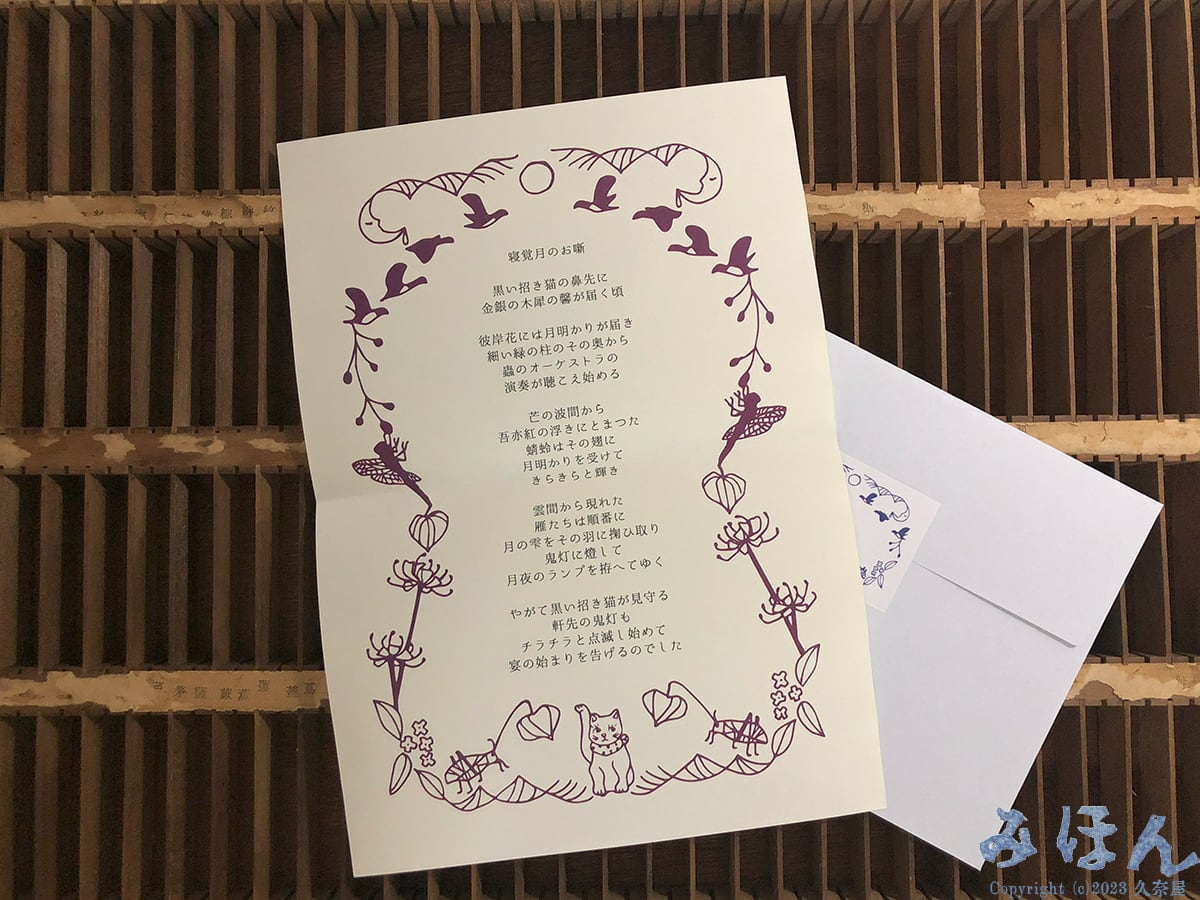 寝覚月のお噺
黒い招き猫の鼻先に
金銀の木犀の馨が届く頃
彼岸花には月明かりが届き
細い緑の柱のその奥から
蟲のオーケストラの
演奏が聴こえ始める
芒の波間から
吾亦紅の浮きにとまつた
蜻蛉はその翅に
月明かりを受けて
きらきらと輝き
雲間から現れた
雁たちは順番に
月の雫をその羽に掬ひ取り
鬼灯に燈して
月夜のランプを拵へてゆく
やがて黒い招き猫が見守る
軒先の鬼灯も
チラチラと点滅し始めて
宴の始まりを告げるのでした
みほん
Copyright (c)2023 久奈屋